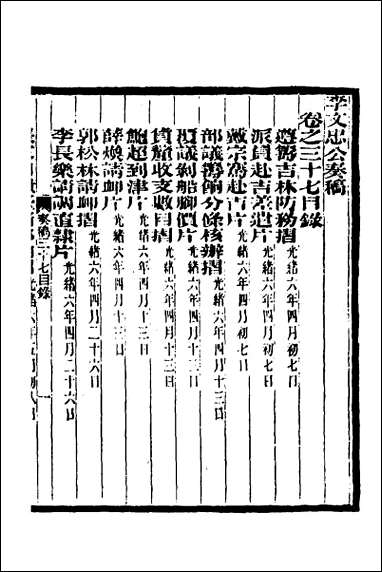 李文忠公奏稿
卷之三十七目錄
遵籌吉林防務摺 光緒六年四月初七日
派員赴吉差遣片 光緒六年四月初七日
戴宗騫赴吉片 光緒六年四月初七日
部議籌餉分條核辦摺 光緒六年四月十三日
覆議剝船腳價片 光緒六年四月十三日
賃釐收支數目摺 光緒六年四月十三日
鮑超到津片 光緒六年四月十三日
薛煥請卹片 光緒六年四月十三日
郭松林請卹摺 光緒六年四月二十六日
李長樂請調直隸片 光緒六年四月二十六日
奏稿三十七目錄 一